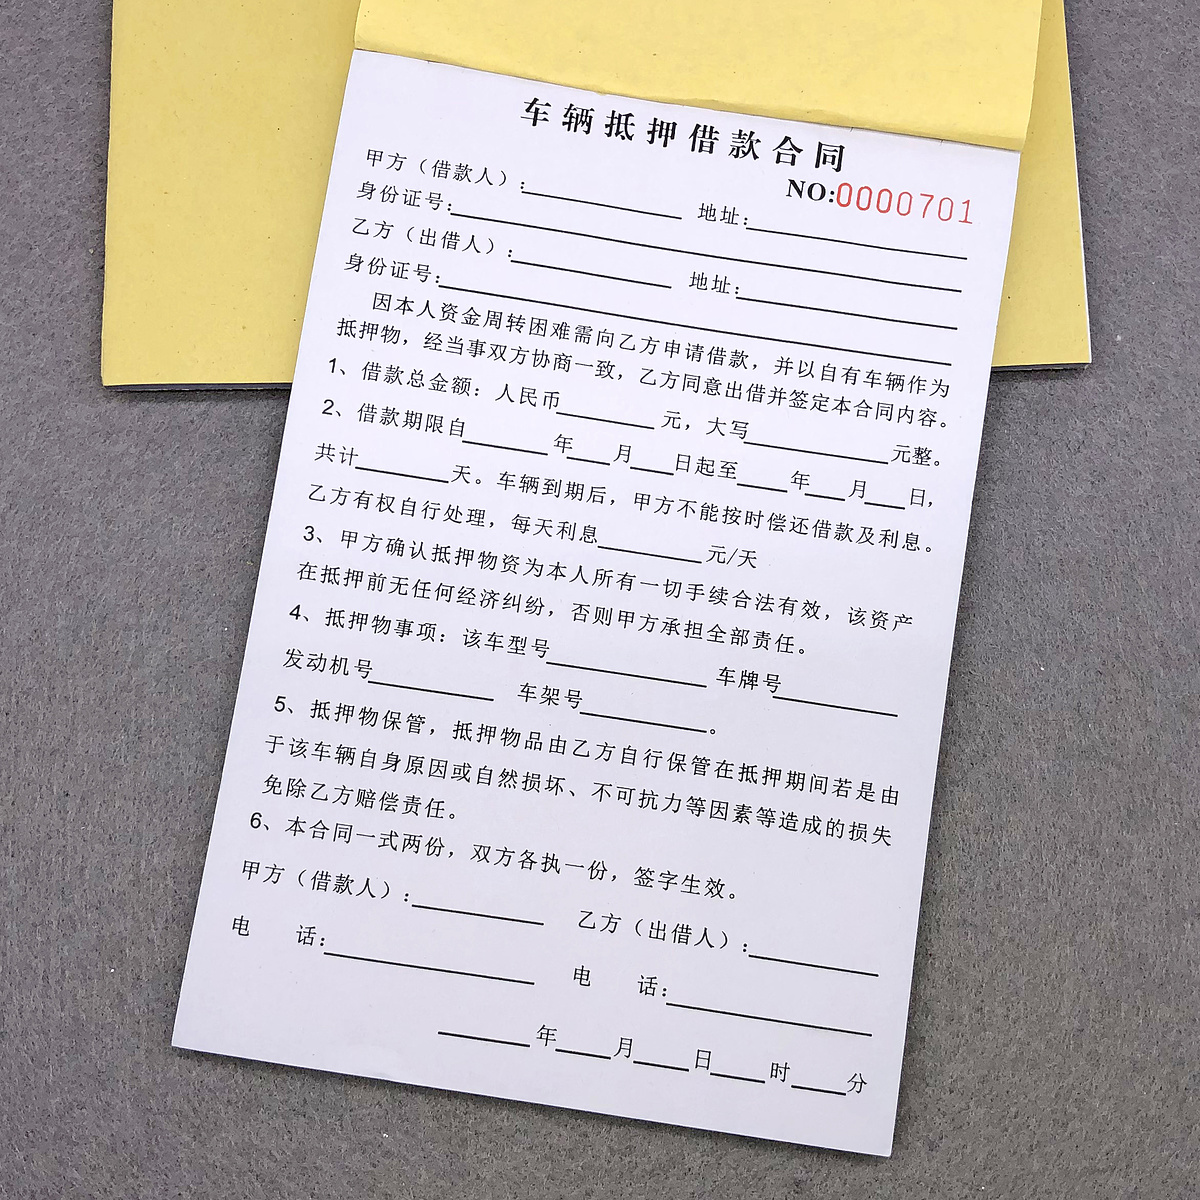 车辆抵押借款合同
NO:0000701
甲方（借款人）:________ 地址:________
身份证号:________
乙方（出借人）:________ 地址:________
身份证号:________
因本人资金周转困难需向乙方申请借款，并以自有车辆作为
抵押物，经当事双方协商一致，乙方同意出借并签定本合同内容。
1、借款总金额：人民币________元，大写________元整。
2、借款期限自________年____月____日起至____年____月____日，
共计________天。车辆到期后，甲方不能按时偿还借款及利息。
乙方有权自行处理，每天利息________元/天
3、甲方确认抵押物资为本人所有一切手续合法有效，该资产
在抵押前无任何经济纠纷，否则甲方承担全部责任。
4、抵押物事项：该车型号________ 车牌号________
发动机号________ 车架号________。
5、抵押物保管，抵押物品由乙方自行保管在抵押期间若是由
于该车辆自身原因或自然损坏、不可抗力等因素等造成的损失
免除乙方赔偿责任。
6、本合同一式两份，双方各执一份，签字生效。
甲方（借款人）:________ 乙方（出借人）:________
电 话:________ 电 话:________
________年____月____日____时____分